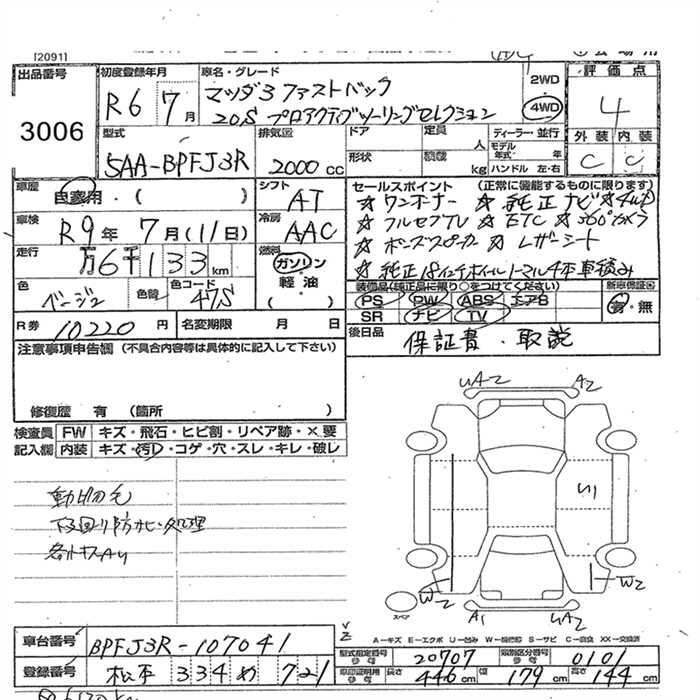 [2091]
出品番号
3006
初度登録年月
R6 7月
車名・グレード
マツダ3 ファストバック
20S プロアクティブツーリングセレクション
2WD
4WD
評価点
4
外装 内装
C C
型式
5AA-BPFJ3R
排気図
2000cc
ドア
形状
定員
人
積載
kg
ディーラー・並行
モデル年式 年
ハンドル 左・右
車歴
自家用・( )
シフト
AT
車検
R9年 7月(11日)
冷房
AAC
走行
万6千133km
燃料
ガソリン
軽油
( )
色
ベージュ
色替
色コード
47S
R券
10220円
名変期限 月 日
セールスポイント (正常に機能するものに限ります)
☆ワンオーナー ☆純正ナビ ☆4WD
☆フルセグTV ☆ETC ☆360°カメラ
☆ボーズスピーカー ☆レザーシート
☆純正18インチホイルノーマル4本車積み
装備品(純正品に限り○をつけてください)
PS PW ABS エアB
SR ナビ TV
新車保証書
有・無
後日品
保証書・取説
注意事項申告欄 (不具合内容等は具体的に記入して下さい)
修復歴 有 (箇所 )
検査員記入欄
FW キズ・飛石・ヒビ割・リペア跡・×要
内装 キズ・汚れ・コゲ・穴・スレ・キレ・破レ
動物毛
下回り防サビ処理
UA2 A2
U1
W2 W2
A1 UA2
スペア
A-キズ E-エクボ U-凹み W-補修跡 S-サビ C-腐食 XX-交換済
車台番号
BPFJ3R-107041
登録番号
松本 334 め 721
型式指定番号
参考
20707
類別区分番号
参考
0101
車印証明用
参考
長さ 446cm 幅 179cm 高さ 144cm